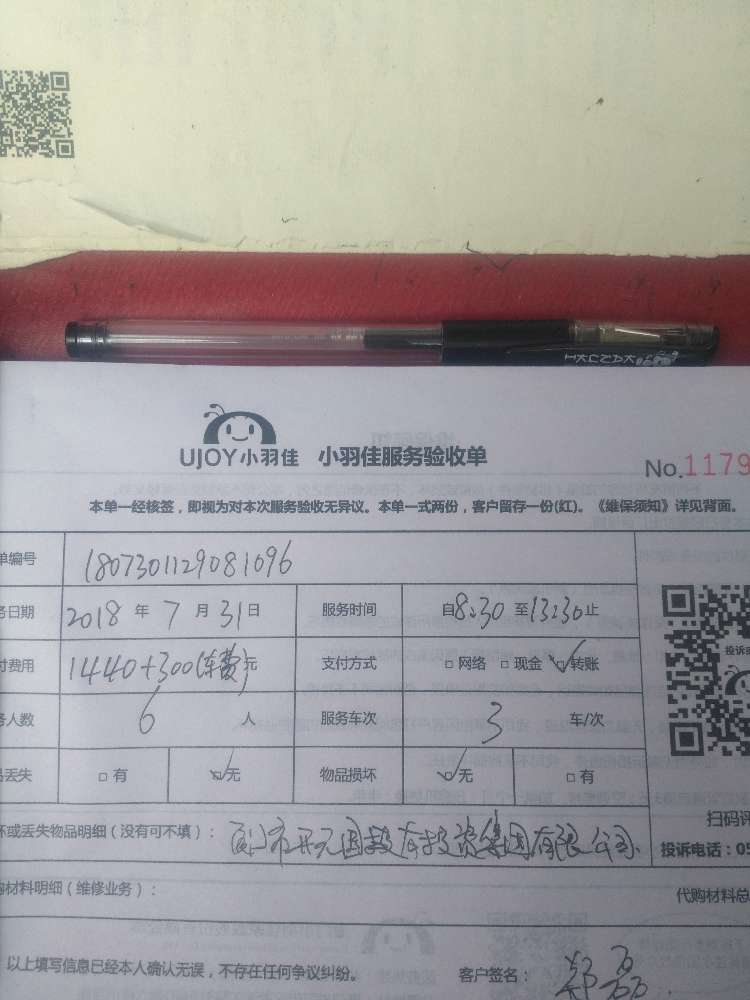 UJOY小羽佳 小羽佳服务验收单
No.1179
本单一经核签，即视为对本次服务验收无异议。本单一式两份，客户留存一份(红)。《维保须知》详见背面。
单编号 1807301129081096
务日期 2018 年 7 月 31 日 服务时间 自 8:30 至 13:30 止
付费用 1440+300(车费)元 支付方式 □网络 □现金 ☑转账
务人数 6 人 服务车次 3 车/次
品丢失 □有 ☑无 物品损坏 ☑无 □有
投诉
坏或丢失物品明细（没有可不填）： 厦门市开元国投本投资集团有限公司
扫码评
投诉电话：05
购材料明细（维修业务）： 代购材料总
以上填写信息已经本人确认无误，不存在任何争议纠纷。 客户签名：